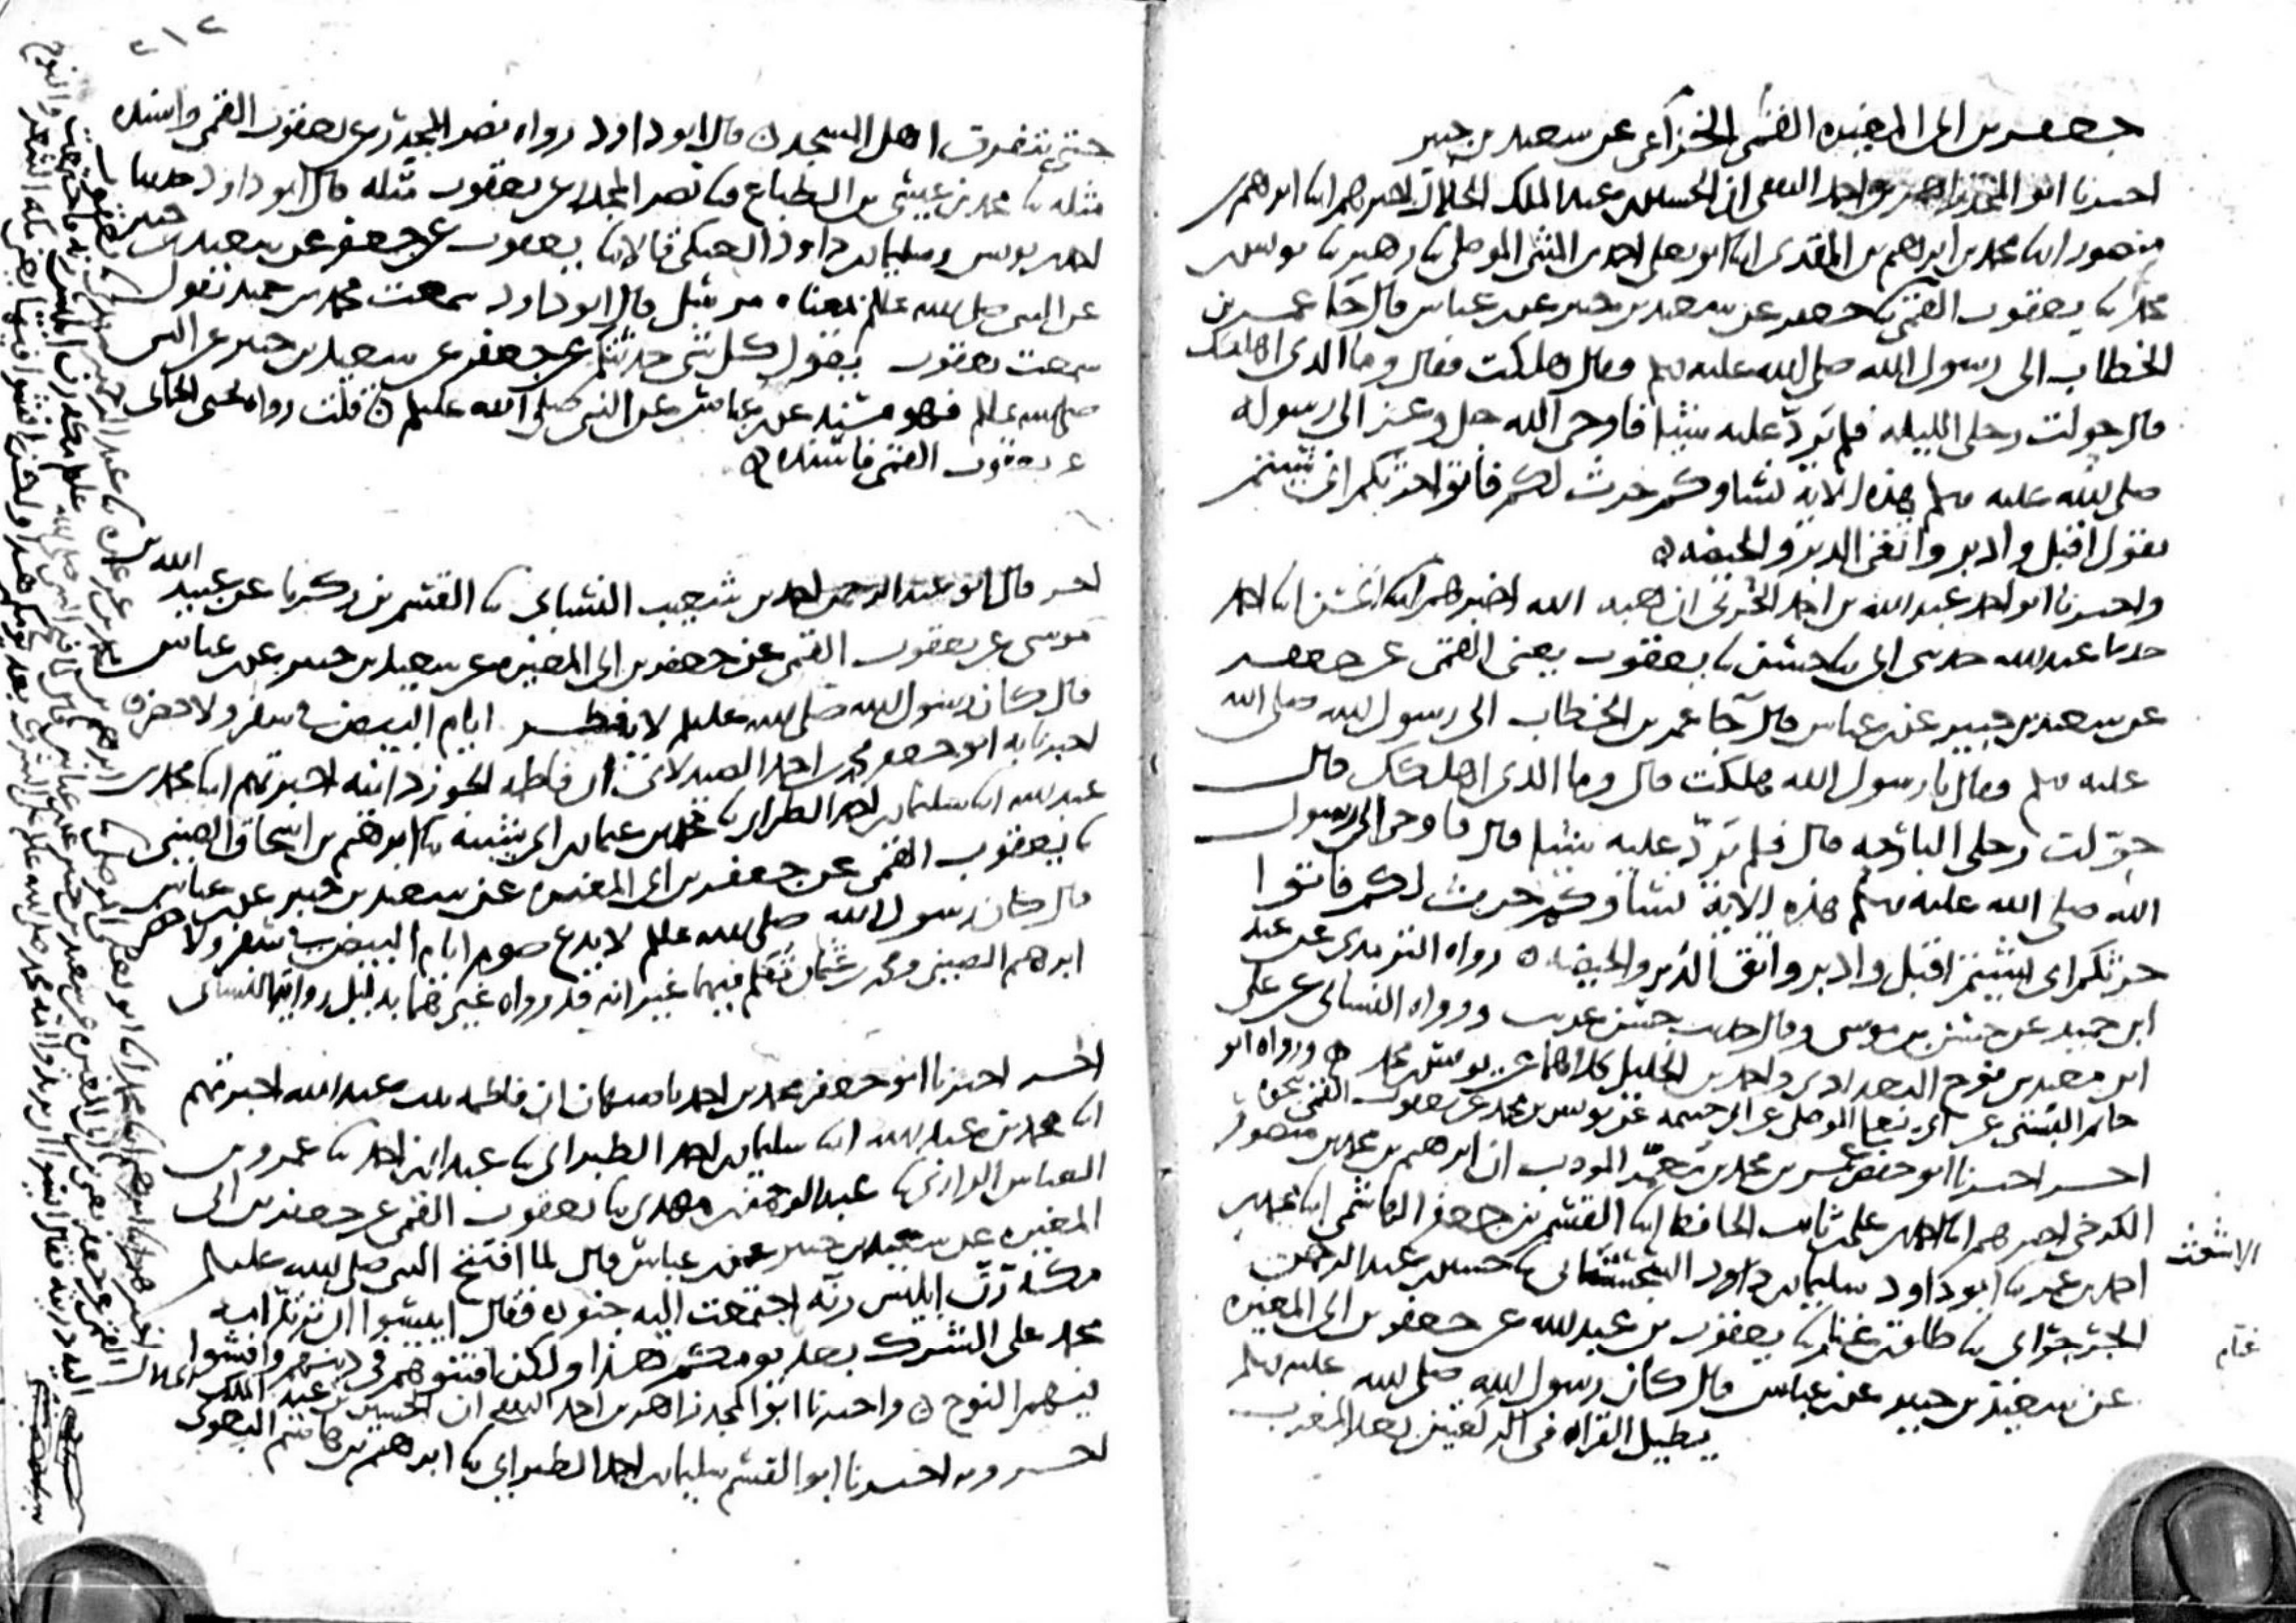 جعفر بن ابي المغيره القمي الخزاعي عن سعيد بن جبير
اخبرنا ابو المجد زاهر بن احمد الثقفي ان الحسين بن عبد الملك الخلال اخبرهم ابنا ابرهيم بن
منصور ابنا محمد بن ابرهيم بن المقري ابنا ابو يعلى احمد بن المثنى الموصلي ثنا زهير ثنا يونس بن
محمد ثنا يعقوب القمي ثنا جعفر عن سعيد بن جبير عن ابن عباس قال جا عمر بن
الخطاب الى رسول الله صلى الله عليه وسلم فقال هلكت فقال وما الذي اهلكك
قال حولت رحلي الليله فلم يرد عليه شيئا فاوحى الله جل وعز الى رسوله
صلى الله عليه وسلم هذه الايه نساوكم حرث لكم فاتوا حرثكم انى شيتم
يقول اقبل وادبر واتقى الدبر والحيضه
واخبرنا ابو احمد عبد الله بن احمد الحربي ان هبه الله اخبرهم ابنا الحسن ابنا احمد
حدثنا عبد الله حدثني ابي ثنا حسن ثنا يعقوب يعني القمي عن جعفر
عن سعيد بن جبير عن ابن عباس قال جا عمر بن الخطاب الى رسول الله صلى الله
عليه وسلم فقال يا رسول الله هلكت قال وما الذي اهلكك قال
حولت رحلي البارحه قال فلم يرد عليه شيئا قال فاوحى الى رسول
الله صلى الله عليه وسلم هذه الاية نساوكم حرث لكم فاتوا
حرثكم انى شيتم اقبل وادبر واتق الدبر والحيضه رواه الترمذي عن عبد
ابن حميد عن حسن بن موسى وقال حديث حسن غريب ورواه النسائي عن علي
ابن معبد بن نوح البغدادي واحمد بن الخليل كلاهما عن يونس بن محمد ورواه ابو
حاتم البستي عن ابي يعلى الموصلي عن ابي خيثمه عن يونس بن محمد عن يعقوب القمي بنحوه
اخبر اخبرنا ابو حفص عمر بن محمد بن معمر المودب ان ابرهيم بن محمد بن منصور
الكرخي اخبرهم ابنا احمد بن علي بن ثابت الحافظ ابنا القسم بن جعفر الهاشمي ابنا محمد بن
احمد بن عمر ثنا ابو داود سليمان بن داود السجستاني ثنا حسين بن عبد الرحمن
الاشعث
الجرجراي ثنا طلق بن غنام ثنا يعقوب بن عبد الله عن جعفر بن ابي المغيره
غنام
عن سعيد بن جبير عن ابن عباس قال كان رسول الله صلى الله عليه وسلم
يطيل القراه في الركعتين بعد المغرب
٢١٢
حتى يتفرق اهل المسجد قال ابو داود رواه نصر المجدر عن يعقوب القمي واسنده
مثله ثنا محمد بن عيسى بن الطباع ثنا نصر المجدر عن يعقوب مثله قال ابو داود حدثنا
احمد بن يونس وسليمان بن داود العتكي قالا ثنا يعقوب عن جعفر عن سعيد بن جبير
عن النبي صلى الله عليه وسلم بمعناه مرسل قال ابو داود سمعت محمد بن حميد يقول
سمعت يعقوب يقول كل شي حدثتكم عن جعفر عن سعيد بن جبير عن النبي
صلى الله عليه وسلم فهو مسند عن ابن عباس عن النبي صلى الله عليه وسلم قلت رواه يحيى الحماني
عن يعقوب القمي فاسنده
اخبر قال ابو عبد الرحمن احمد بن شعيب النسائي ثنا القسم بن زكريا عن عبيد الله بن
موسى عن يعقوب القمي عن جعفر بن ابي المغيره عن سعيد بن جبير عن ابن عباس
قال كان رسول الله صلى الله عليه وسلم لا يفطر ايام البيض في سفر ولا حضر
اخبرنا به ابو جعفر محمد بن احمد الصيدلاني ان فاطمه الجوزدانيه اخبرتهم ابنا محمد بن
عبد الله ابنا سليمان بن احمد الطبراني ثنا محمد بن عثمان بن ابي شيبه ثنا ابرهيم بن اسحاق الصيني
ثنا يعقوب القمي عن جعفر بن ابي المغيره عن سعيد بن جبير عن ابن عباس
قال كان رسول الله صلى الله عليه وسلم لا يدع صوم ايام البيض في سفر ولا حضر
ابرهيم الصيني ومحمد بن عثمان تكلم فيهما غير انه قد رواه غيرهما بدليل رواية النسائي
اخبر اخبرنا ابو جعفر محمد بن احمد باصبهان ان فاطمه بنت عبد الله اخبرتهم
ابنا محمد بن عبد الله ابنا سليمان بن احمد الطبراني ثنا عبدان بن احمد ثنا عمرو بن
العباس الرازي ثنا عبد الرحمن بن مهدي ثنا يعقوب القمي عن جعفر بن ابي
المغيره عن سعيد بن جبير عن ابن عباس قال لما افتتح النبي صلى الله عليه وسلم
مكة رن ابليس رنه اجتمعت اليه جنوده فقال ايئسوا ان تريد امه
محمد على الشرك بعد يومكم هذا ولكن افتنوهم في دينهم وافشوا
فيهم النوح واخبرنا ابو المجد زاهر بن احمد الثقفي ان الحسين بن عبد الملك الخلال
اخبر وبه اخبرنا ابو القسم سليمان بن احمد الطبراني ثنا ابرهيم بن هاشم البغوي
اخبرهم ابنا ابرهيم ابنا محمد ابنا ابو يعلى الموصلي ثنا
القمي عن جعفر يعني ابن ابي المغيره عن سعيد بن جبير عن ابن عباس قال لما فتح النبي صلى الله عليه وسلم مكه رن ابليس رنه فاجتمعت
اليه ذريته فقال ايئسوا ان تريدوا امه محمد صلى الله عليه وسلم على الشرك بعد يومكم هذا ولكن افشوا فيها يعني مكه الشعر والنوح